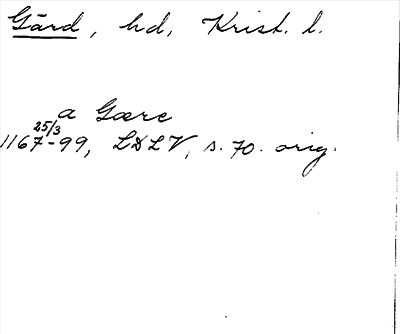 Gärd, hd, Krist. l.
a Gærc
25/3
1167-99, LDLV, s. 70. orig.